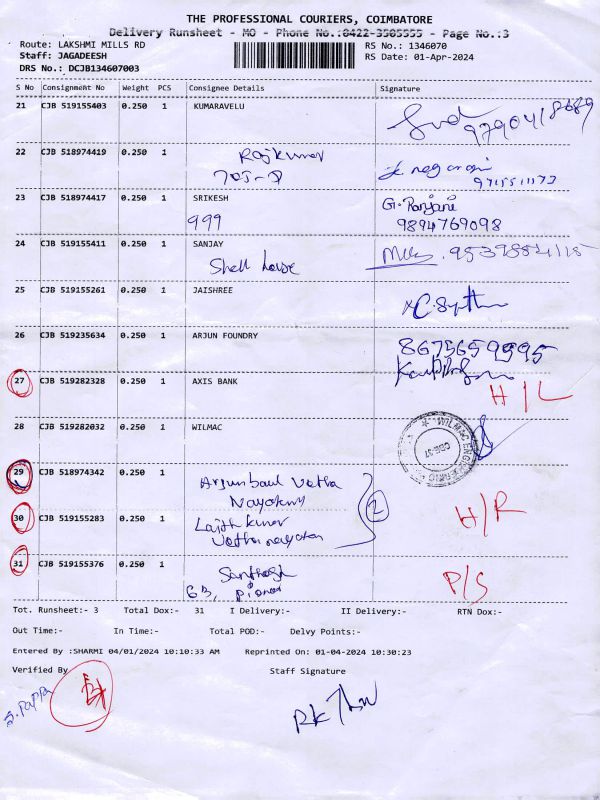 THE PROFESSIONAL COURIERS, COIMBATORE
Delivery Runsheet - MO - Phone No.:0422-3505555 - Page No.:3
Route: LAKSHMI MILLS RD RS No.: 1346070
Staff: JAGADEESH RS Date: 01-Apr-2024
DRS No.: DCJB134607003
S No Consignment No Weight PCS Consignee Details Signature
21 CJB 519155403 0.250 1 KUMARAVELU
22 CJB 518974419 0.250 1 Rajkumar
705-D
23 CJB 518974417 0.250 1 SRIKESH G. Ranjani
999 9894769098
24 CJB 519155411 0.250 1 SANJAY
Shell house
25 CJB 519155261 0.250 1 JAISHREE
26 CJB 519235634 0.250 1 ARJUN FOUNDRY 8675659595
27 CJB 519282328 0.250 1 AXIS BANK H/L
28 CJB 519282032 0.250 1 WILMAC
29 CJB 518974342 0.250 1
2
30 CJB 519155283 0.250 1 H/R
31 CJB 519155376 0.250 1 Santhosh P/S
63,
Tot. Runsheet:- 3 Total Dox:- 31 I Delivery:- II Delivery:- RTN Dox:-
Out Time:- In Time:- Total POD:- Delvy Points:-
Entered By :SHARMI 04/01/2024 10:10:33 AM Reprinted On: 01-04-2024 10:30:23
Verified By Staff Signature